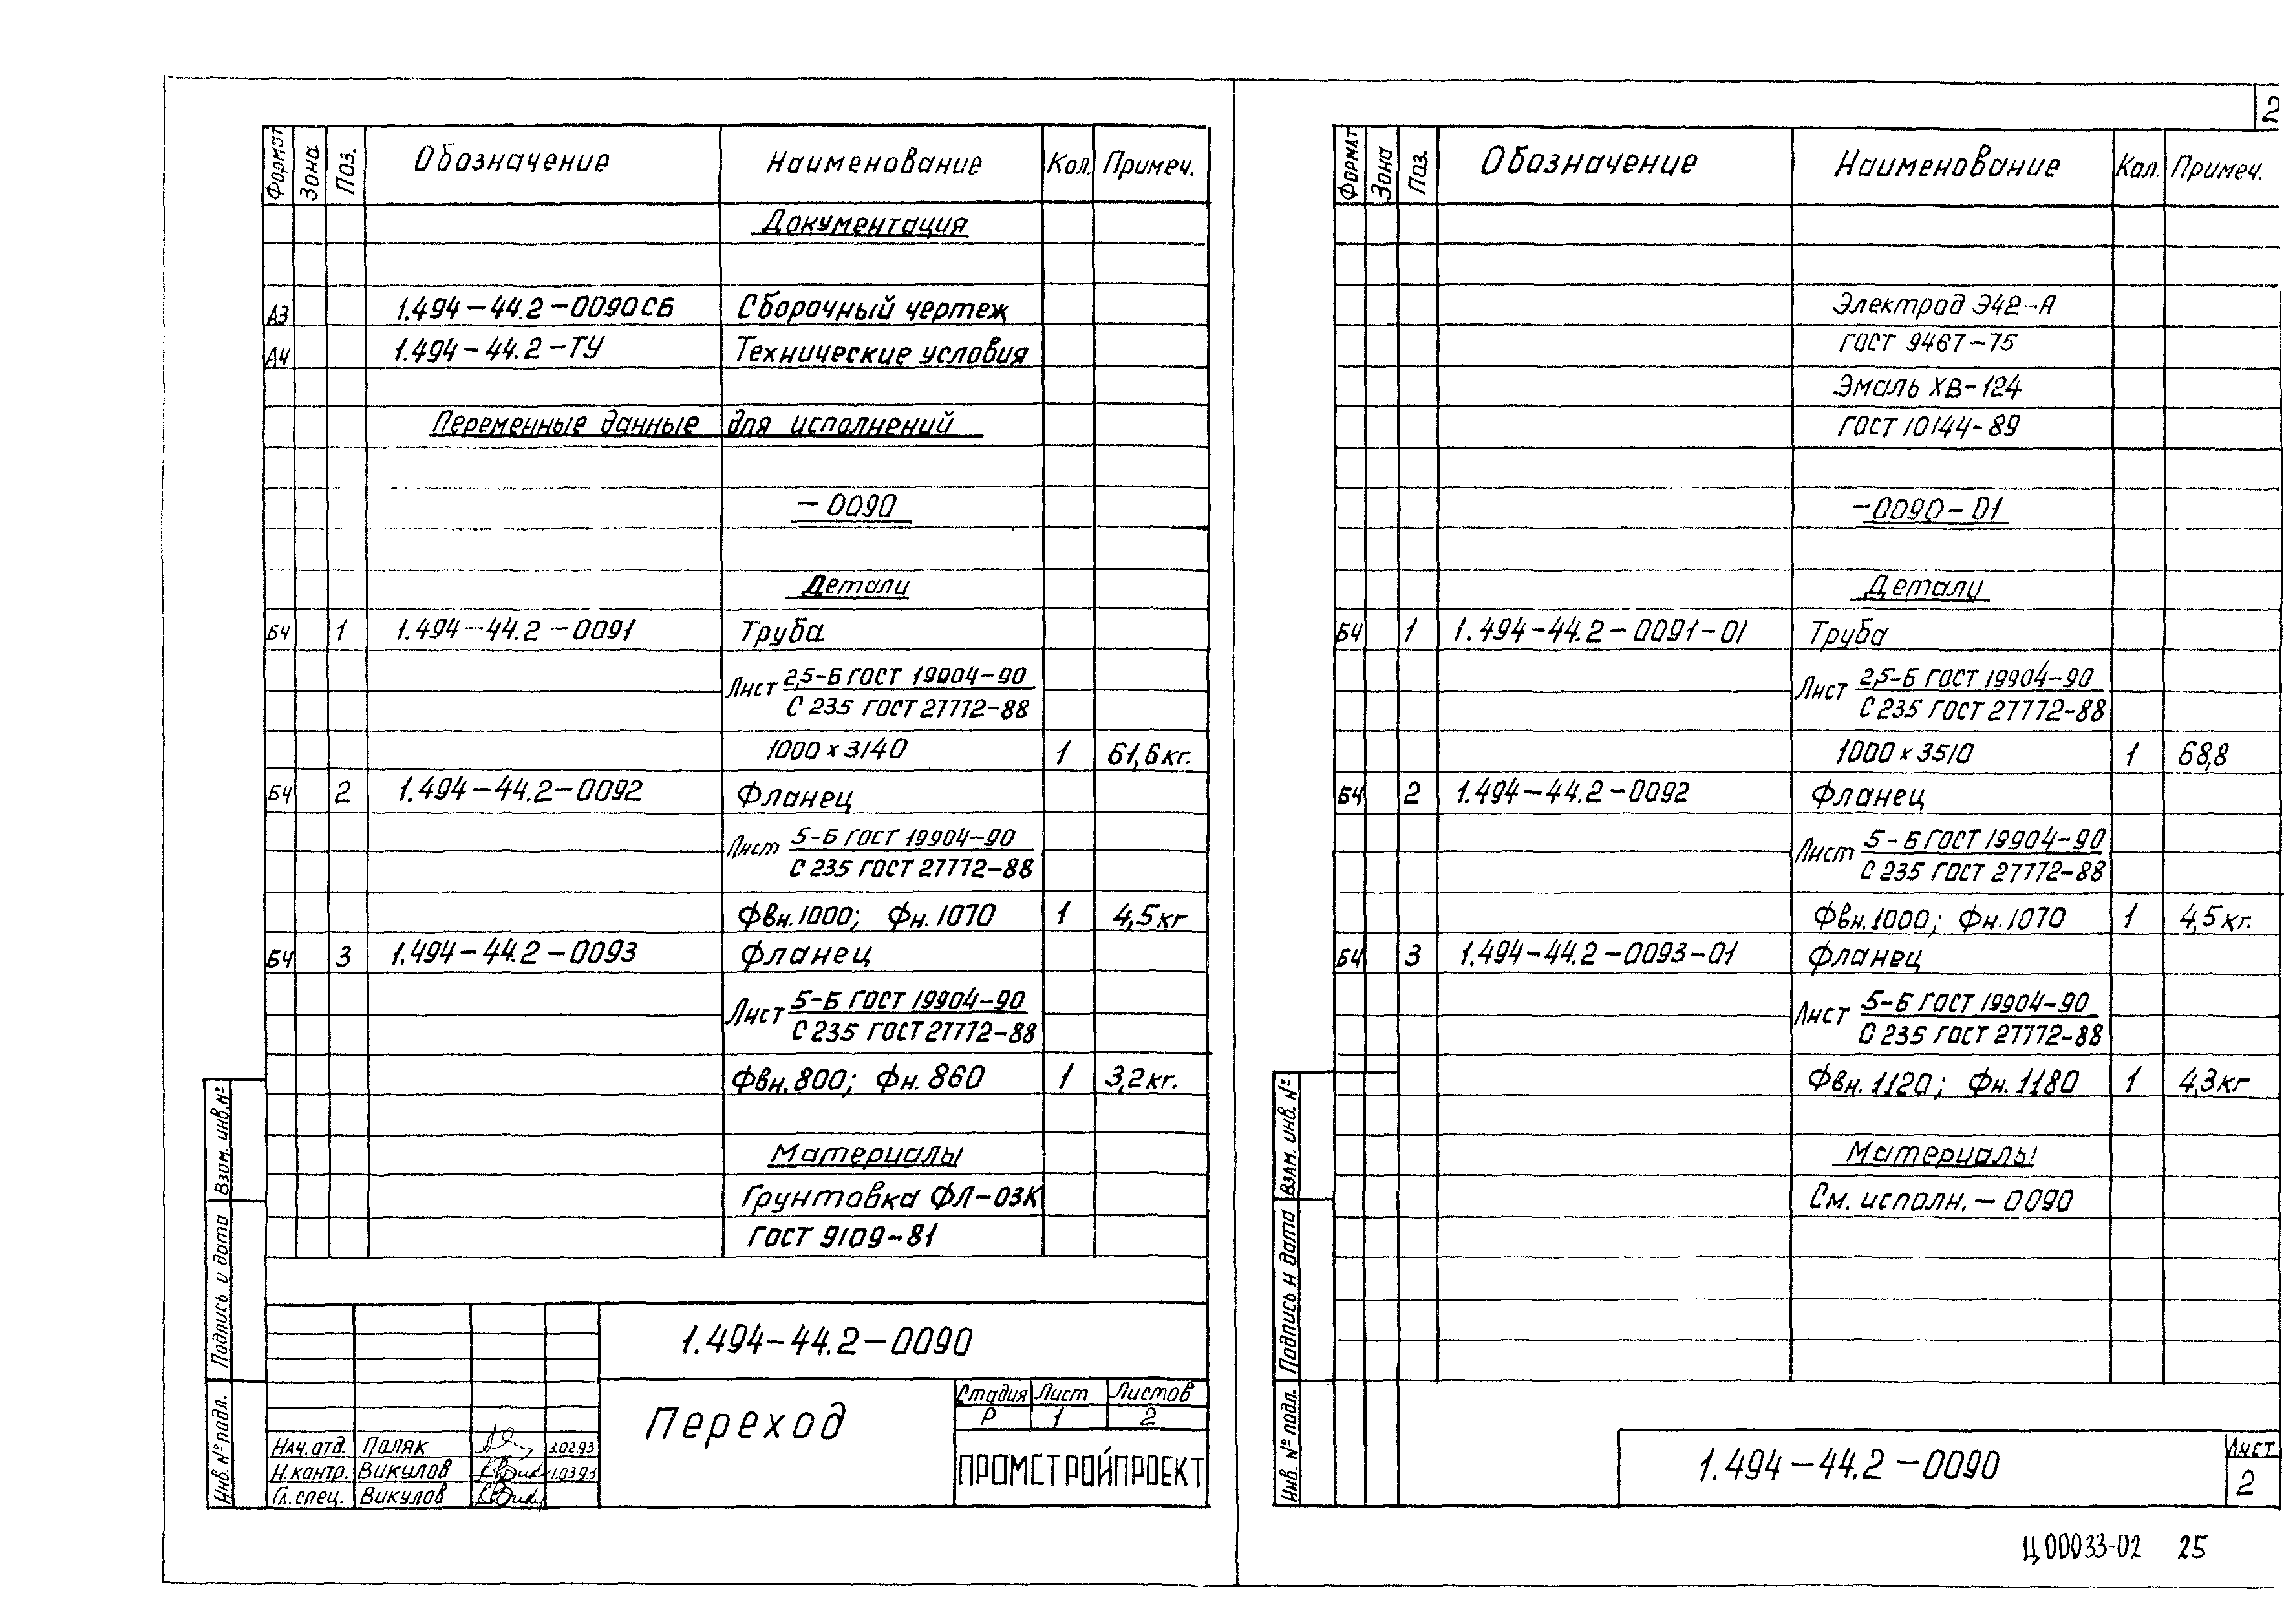 Формат Зона Поз. Обозначение Наименование Кол. Примеч.
Документация
А3 1.494-44.2-0090СБ Сборочный чертеж
А4 1.494-44.2-ТУ Технические условия
Переменные данные для исполнений
-0090
Детали
БЧ 1 1.494-44.2-0091 Труба
Лист 2,5-Б ГОСТ 19904-90
С 235 ГОСТ 27772-88
1000 х 3140 1 61,6 кг.
БЧ 2 1.494-44.2-0092 Фланец
Лист 5-Б ГОСТ 19904-90
С 235 ГОСТ 27772-88
Фвн. 1000; Фн. 1070 1 4,5 кг
БЧ 3 1.494-44.2-0093 Фланец
Лист 5-Б ГОСТ 19904-90
С 235 ГОСТ 27772-88
Фвн. 800; Фн. 860 1 3,2 кг.
Материалы
Грунтовка ФЛ-03К
ГОСТ 9109-81
Взам. инв. №
Подпись и дата
Инв. № подл.
1.494-44.2-0090
Переход
Стадия Лист Листов
Р 1 2
ПРОМСТРОЙПРОЕКТ
Нач. отд. Поляк 1.02.93
Н. контр. Викулов 1.03.93
Гл. спец. Викулов
2
Формат Зона Поз. Обозначение Наименование Кол. Примеч.
Электрод Э42-А
ГОСТ 9467-75
Эмаль ХВ-124
ГОСТ 10144-89
-0090-01
Детали
БЧ 1 1.494-44.2-0091-01 Труба
Лист 2,5-Б ГОСТ 19904-90
С 235 ГОСТ 27772-88
1000 х 3510 1 68,8
БЧ 2 1.494-44.2-0092 Фланец
Лист 5-Б ГОСТ 19904-90
С 235 ГОСТ 27772-88
Фвн. 1000; Фн. 1070 1 4,5 кг.
БЧ 3 1.494-44.2-0093-01 Фланец
Лист 5-Б ГОСТ 19904-90
С 235 ГОСТ 27772-88
Фвн. 1120; Фн. 1180 1 4,3 кг
Материалы
См. исполн. - 0090
Взам. инв. №
Подпись и дата
Инв. № подл.
1.494-44.2-0090
Лист
2
Ц00033-02 25